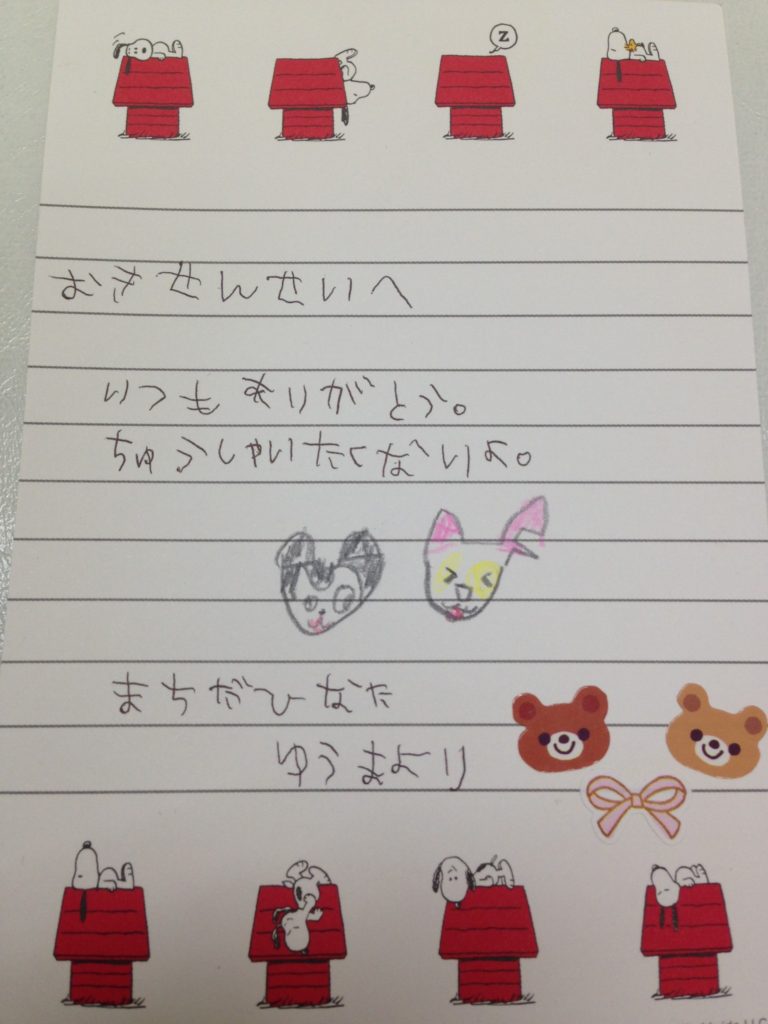 z
おきせんせいへ
いつもありがとう。
ちゅうしゃいたくないよ。
まちだひなた
ゆうまより